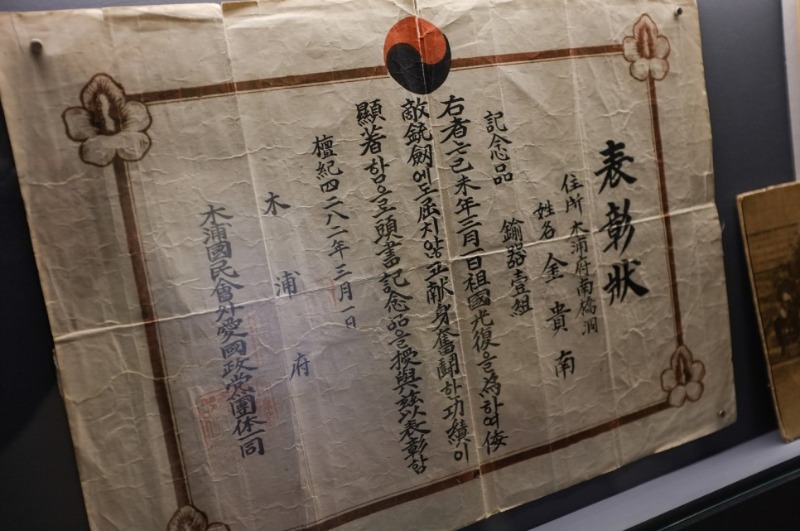 表彰狀
住所 木浦府南橋洞
姓名 金貴南
記念品 鍮器壹組
右者는己未年三月一日祖國光復을為하여倭
敵銃劒에도屈치않고献身奮鬪하功績이
顯著함으로頭書記念品을授與玆以表彰함
檀紀四二八二年三月一日
木浦府
木浦國民會外愛國政党團体一同